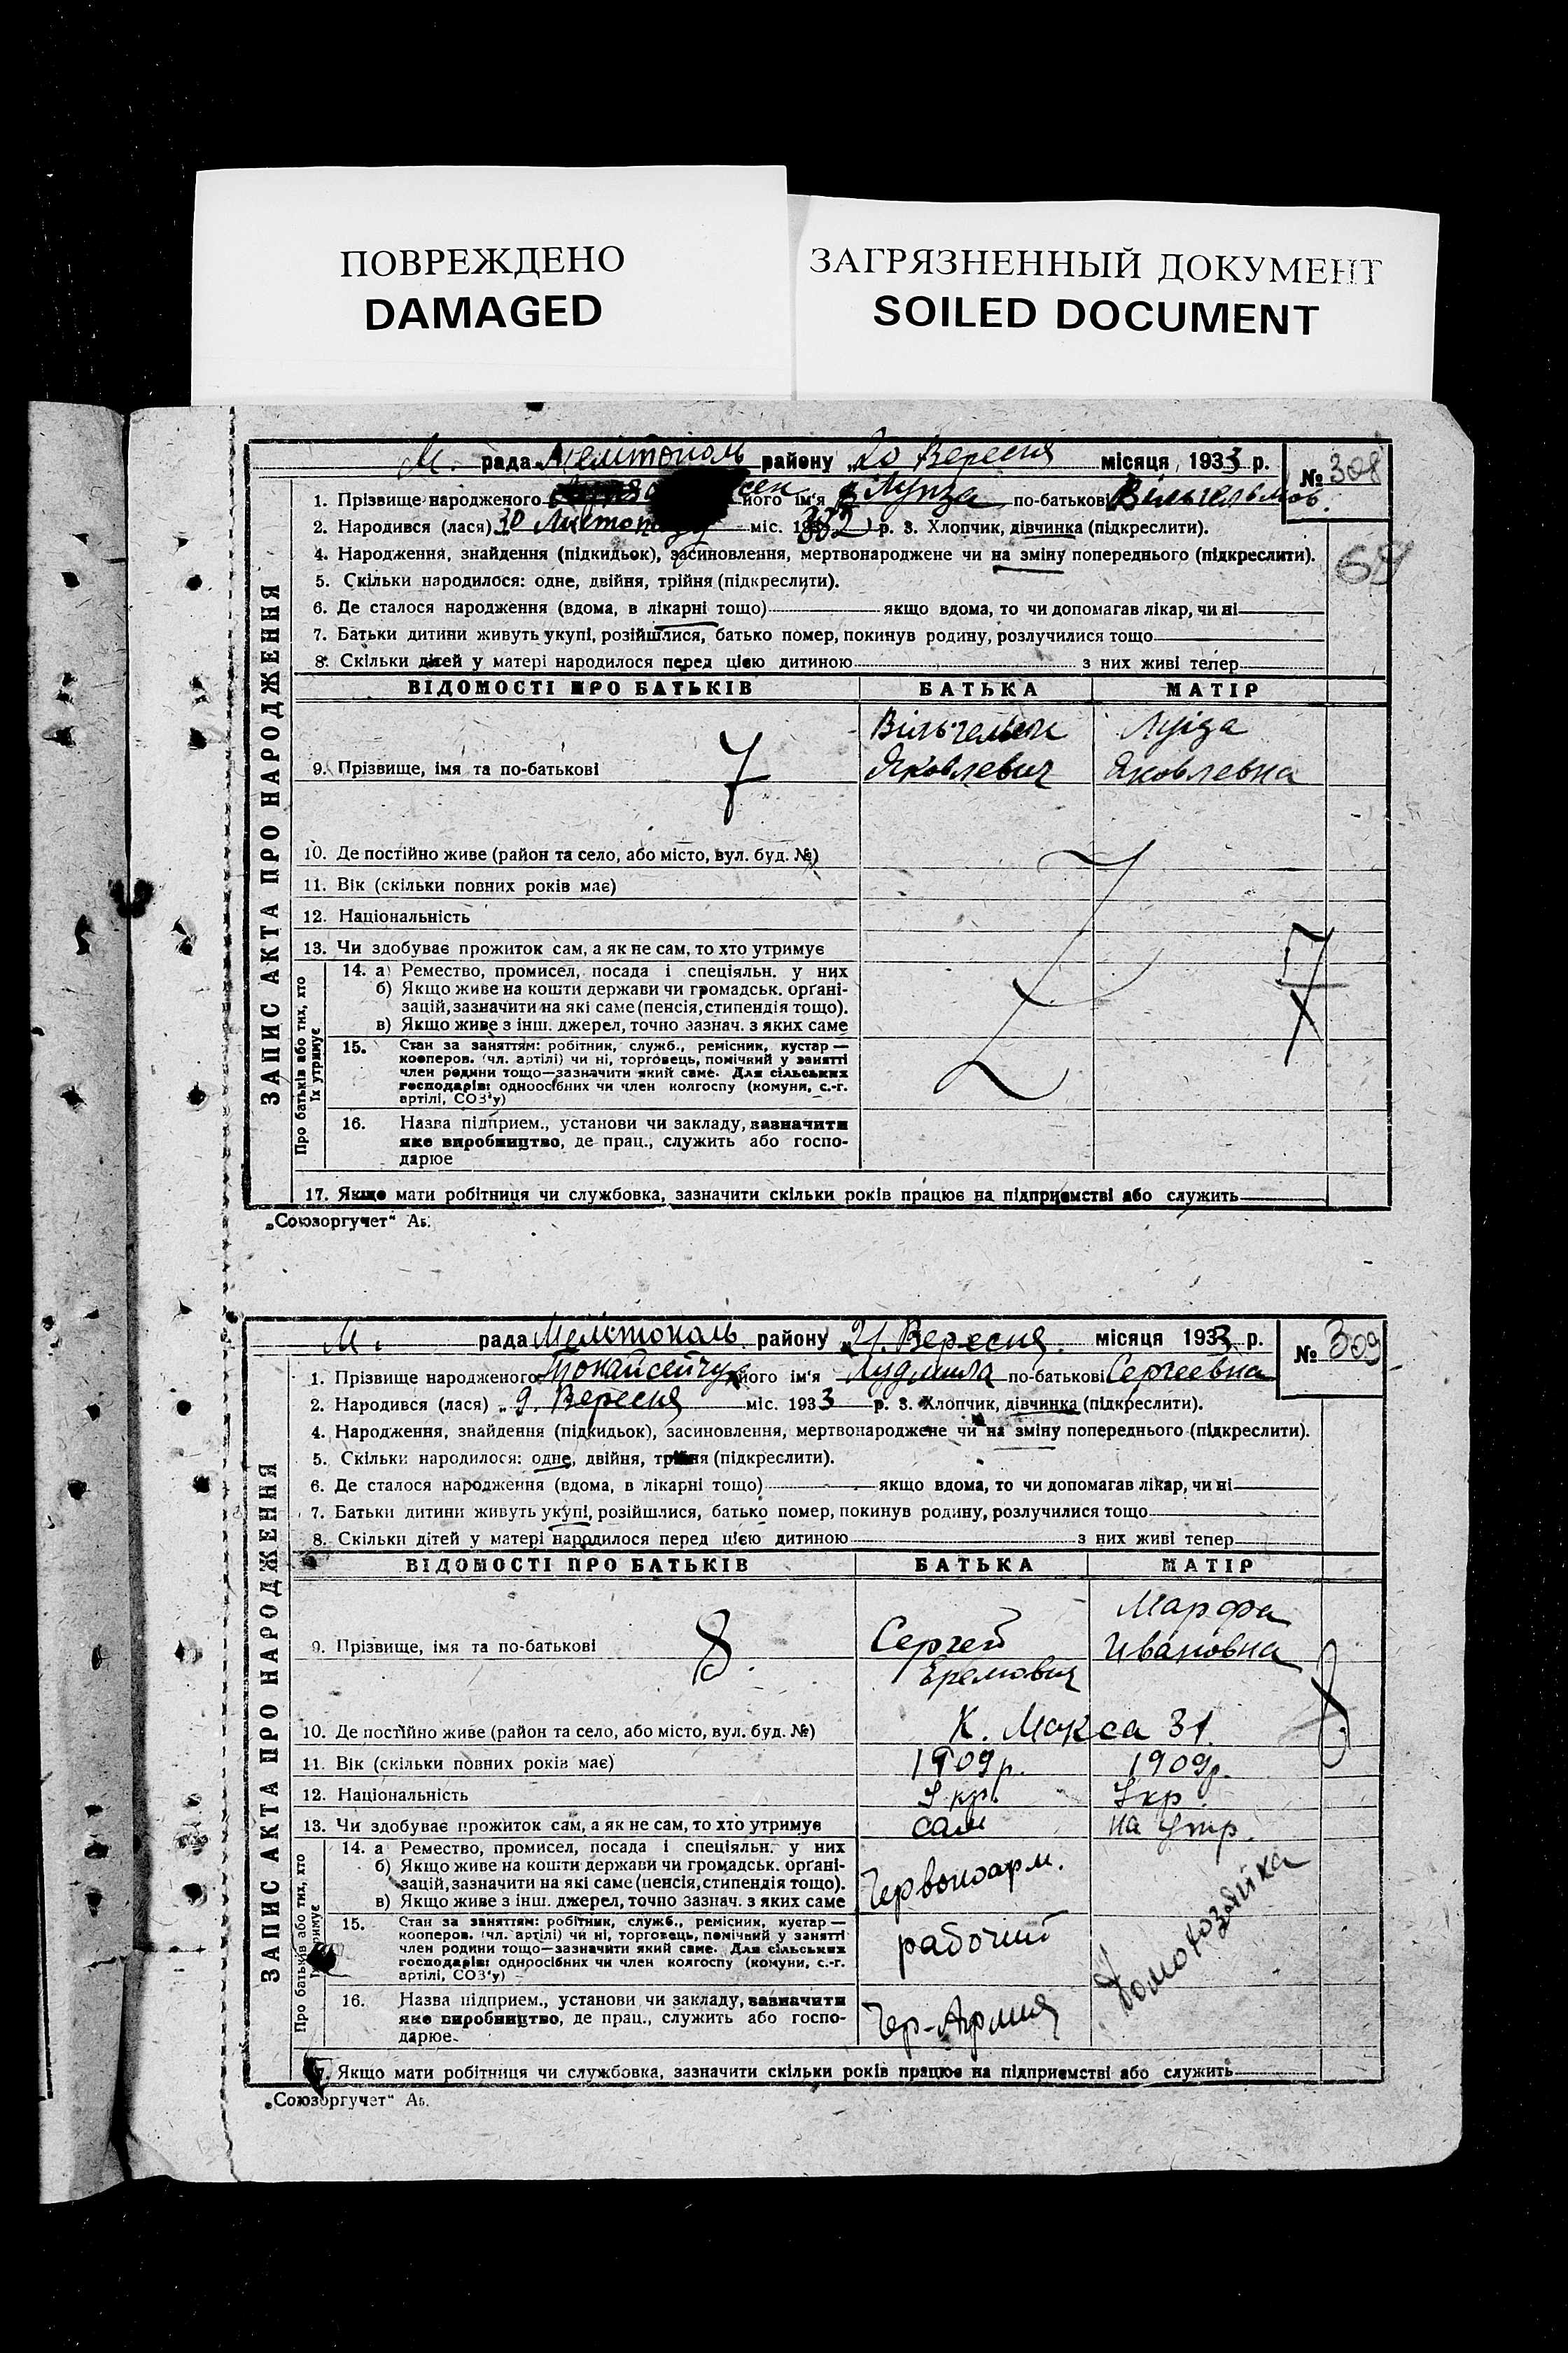 ПОВРЕЖДЕНО
DAMAGED
ЗАГРЯЗНЕННЫЙ ДОКУМЕНТ
SOILED DOCUMENT
М. рада Мелітополь району „20 Вересня місяця 1933 р.
№ 308
1. Прізвище народженого його ім'я Луиза по-батькові Вільгельмов.
2. Народився (лася) 30 міс. р. 3. Хлопчик, дівчинка (підкреслити).
4. Народження, знайдення (підкидьок), засиновлення, мертвонароджене чи на зміну попереднього (підкреслити).
5. Скільки народилося: одне, двійня, трійня (підкреслити).
6. Де сталося народження (вдома, в лікарні тощо) якщо вдома, то чи допомагав лікар, чи ні
7. Батьки дитини живуть укупі, розійшлися, батько помер, покинув родину, розлучилися тощо
8. Скільки дітей у матері народилося перед цією дитиною з них живі тепер
ЗАПИС АКТА ПРО НАРОДЖЕННЯ
ВІДОМОСТІ ПРО БАТЬКІВ БАТЬКА МАТІР
Вільгельм Луіза
9. Прізвище, імя та по-батькові 7 Яковлевич Яковлевна
10. Де постійно живе (район та село, або місто, вул. буд. №)
11. Вік (скільки повних років має)
12. Національність
13. Чи здобуває прожиток сам, а як не сам, то хто утримує
Про батьків або тих, хто їх утримує
14. а) Ремество, промисел, посада і спеціяльн. у них
б) Якщо живе на кошти держави чи громадськ. орґані-
зацій, зазначити на які саме (пенсія, стипендія тощо).
в) Якщо живе з інш. джерел, точно зазнач. з яких саме
15. Стан за заняттям: робітник, служб., ремісник, кустар —
кооперов. (чл. артілі) чи ні, торговець, помічний у занятті
член родини тощо—зазначити який саме. Для сільських
господарів: одноосібних чи член колгоспу (комуни, с.-г.
артілі, СОЗ'у)
16. Назва підприєм., установи чи закладу, зазначити
яке виробництво, де прац., служить або госпо-
дарює
17. Якщо мати робітниця чи службовка, зазначити скільки років працює на підприємстві або служить
„Союзоргучет“ Аь.
М. рада Мелітополь району „21. Вересня місяця 1933 р.
№ 309
1. Прізвище народженого його ім'я Людмила по-батькові Сергеевна
2. Народився (лася) „9. Вересня міс. 1933 р. 3. Хлопчик, дівчинка (підкреслити).
4. Народження, знайдення (підкидьок), засиновлення, мертвонароджене чи на зміну попереднього (підкреслити).
5. Скільки народилося: одне, двійня, трійня (підкреслити).
6. Де сталося народження (вдома, в лікарні тощо) якщо вдома, то чи допомагав лікар, чи ні
7. Батьки дитини живуть укупі, розійшлися, батько помер, покинув родину, розлучилися тощо
8. Скільки дітей у матері народилося перед цією дитиною з них живі тепер
ЗАПИС АКТА ПРО НАРОДЖЕННЯ
ВІДОМОСТІ ПРО БАТЬКІВ БАТЬКА МАТІР
Марфа
9. Прізвище, імя та по-батькові 8. Сергей Ивановна
Еремович
10. Де постійно живе (район та село, або місто, вул. буд. №) К. Макса 31.
11. Вік (скільки повних років має) 1909р. 1909р.
12. Національність Укр. Укр.
13. Чи здобуває прожиток сам, а як не сам, то хто утримує сам на утр.
Про батьків або тих, хто їх утримує
14. а Ремество, промисел, посада і спеціяльн. у них
б) Якщо живе на кошти держави чи громадськ. орґані-
зацій, зазначити на які саме (пенсія, стипендія тощо). Червоноарм.
в) Якщо живе з інш. джерел, точно зазнач. з яких саме
15. Стан за заняттям: робітник, служб., ремісник, кустар —
кооперов. (чл. артілі) чи ні, торговець, помічний у занятті
член родини тощо—зазначити який саме. Для сільських
господарів: одноосібних чи член колгоспу (комуни, с.-г.
артілі, СОЗ'у)
рабочий Домохозяйка
16. Назва підприєм., установи чи закладу, зазначити
яке виробництво, де прац., служить або госпо-
дарює Чер-Армия
17. Якщо мати робітниця чи службовка, зазначити скільки років працює на підприємстві або служить
„Союзоргучет“ Аь.